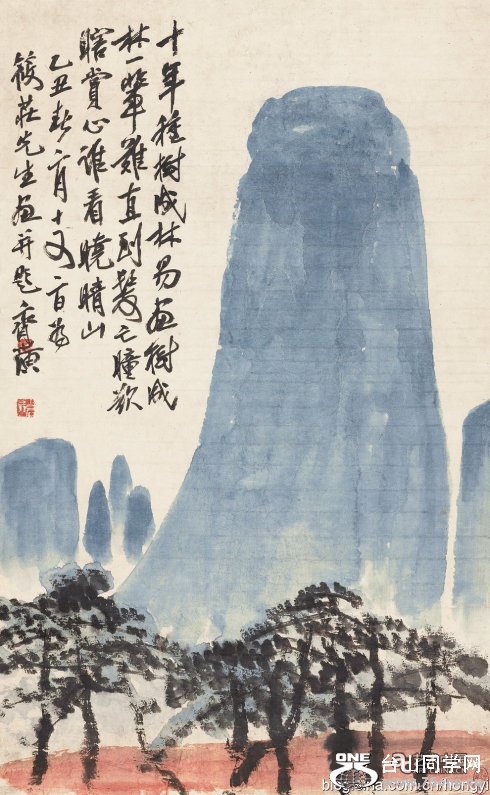 十年種樹成林易畫樹成
林一輩難直到髮亡瞳欲
瞎賞心誰看曉晴山
乙丑春二月十又日為
筱莊先生畫并題齊璜
ONE
台山同学网
blog.sina.com.cn/hongyi